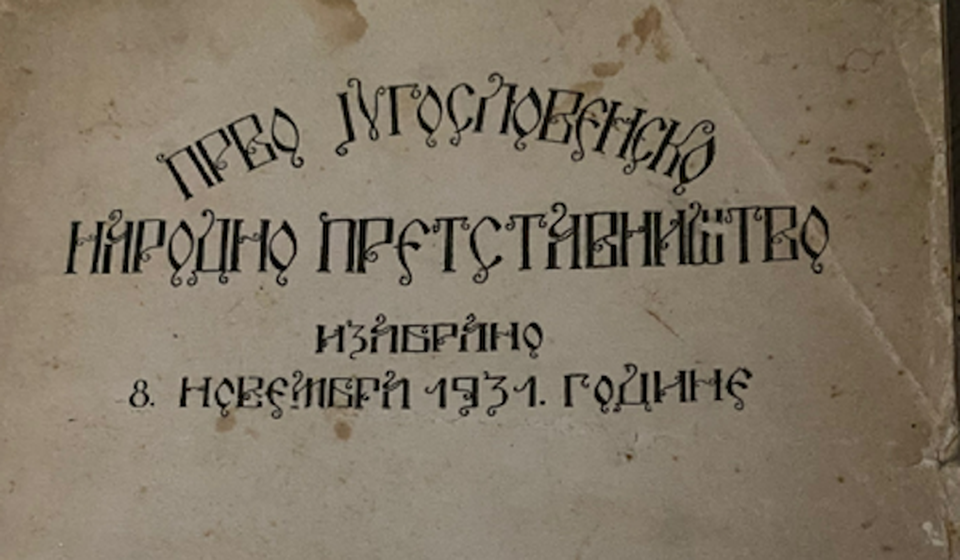 ПРВО ЈУГОСЛОВЕНСКО
НАРОДНО ПРЕТСТАВНИШТВО
ИЗАБРАНО
8. НОВЕМБРА 1931. ГОДИНЕ